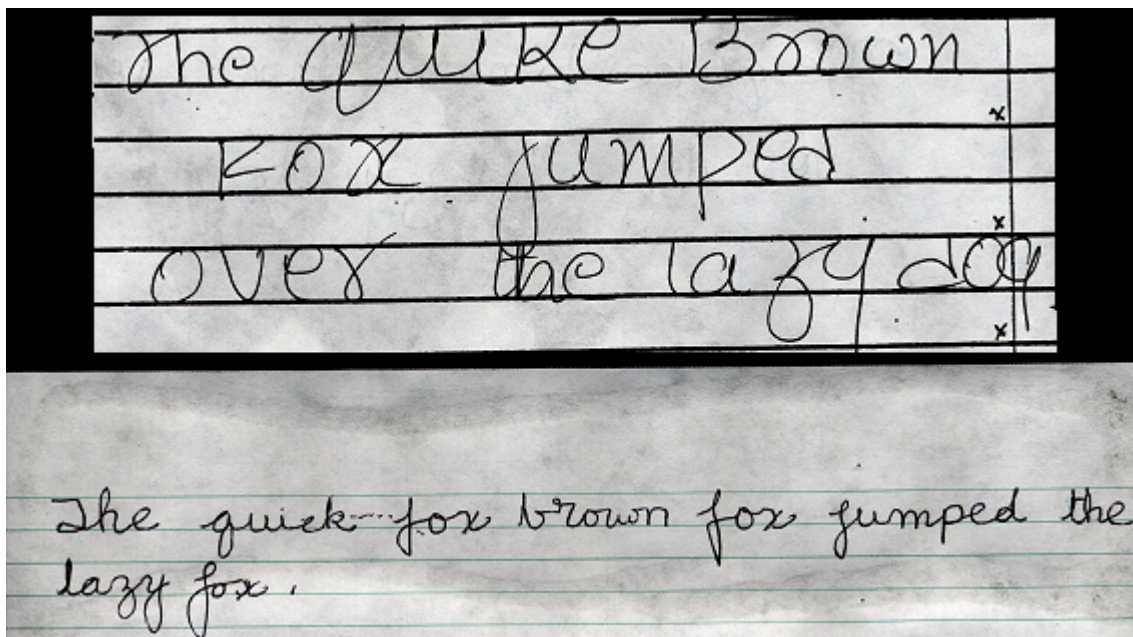 The quike Brown
Fox jumped
over the lazy dog
The quick fox brown fox jumped the
lazy fox.